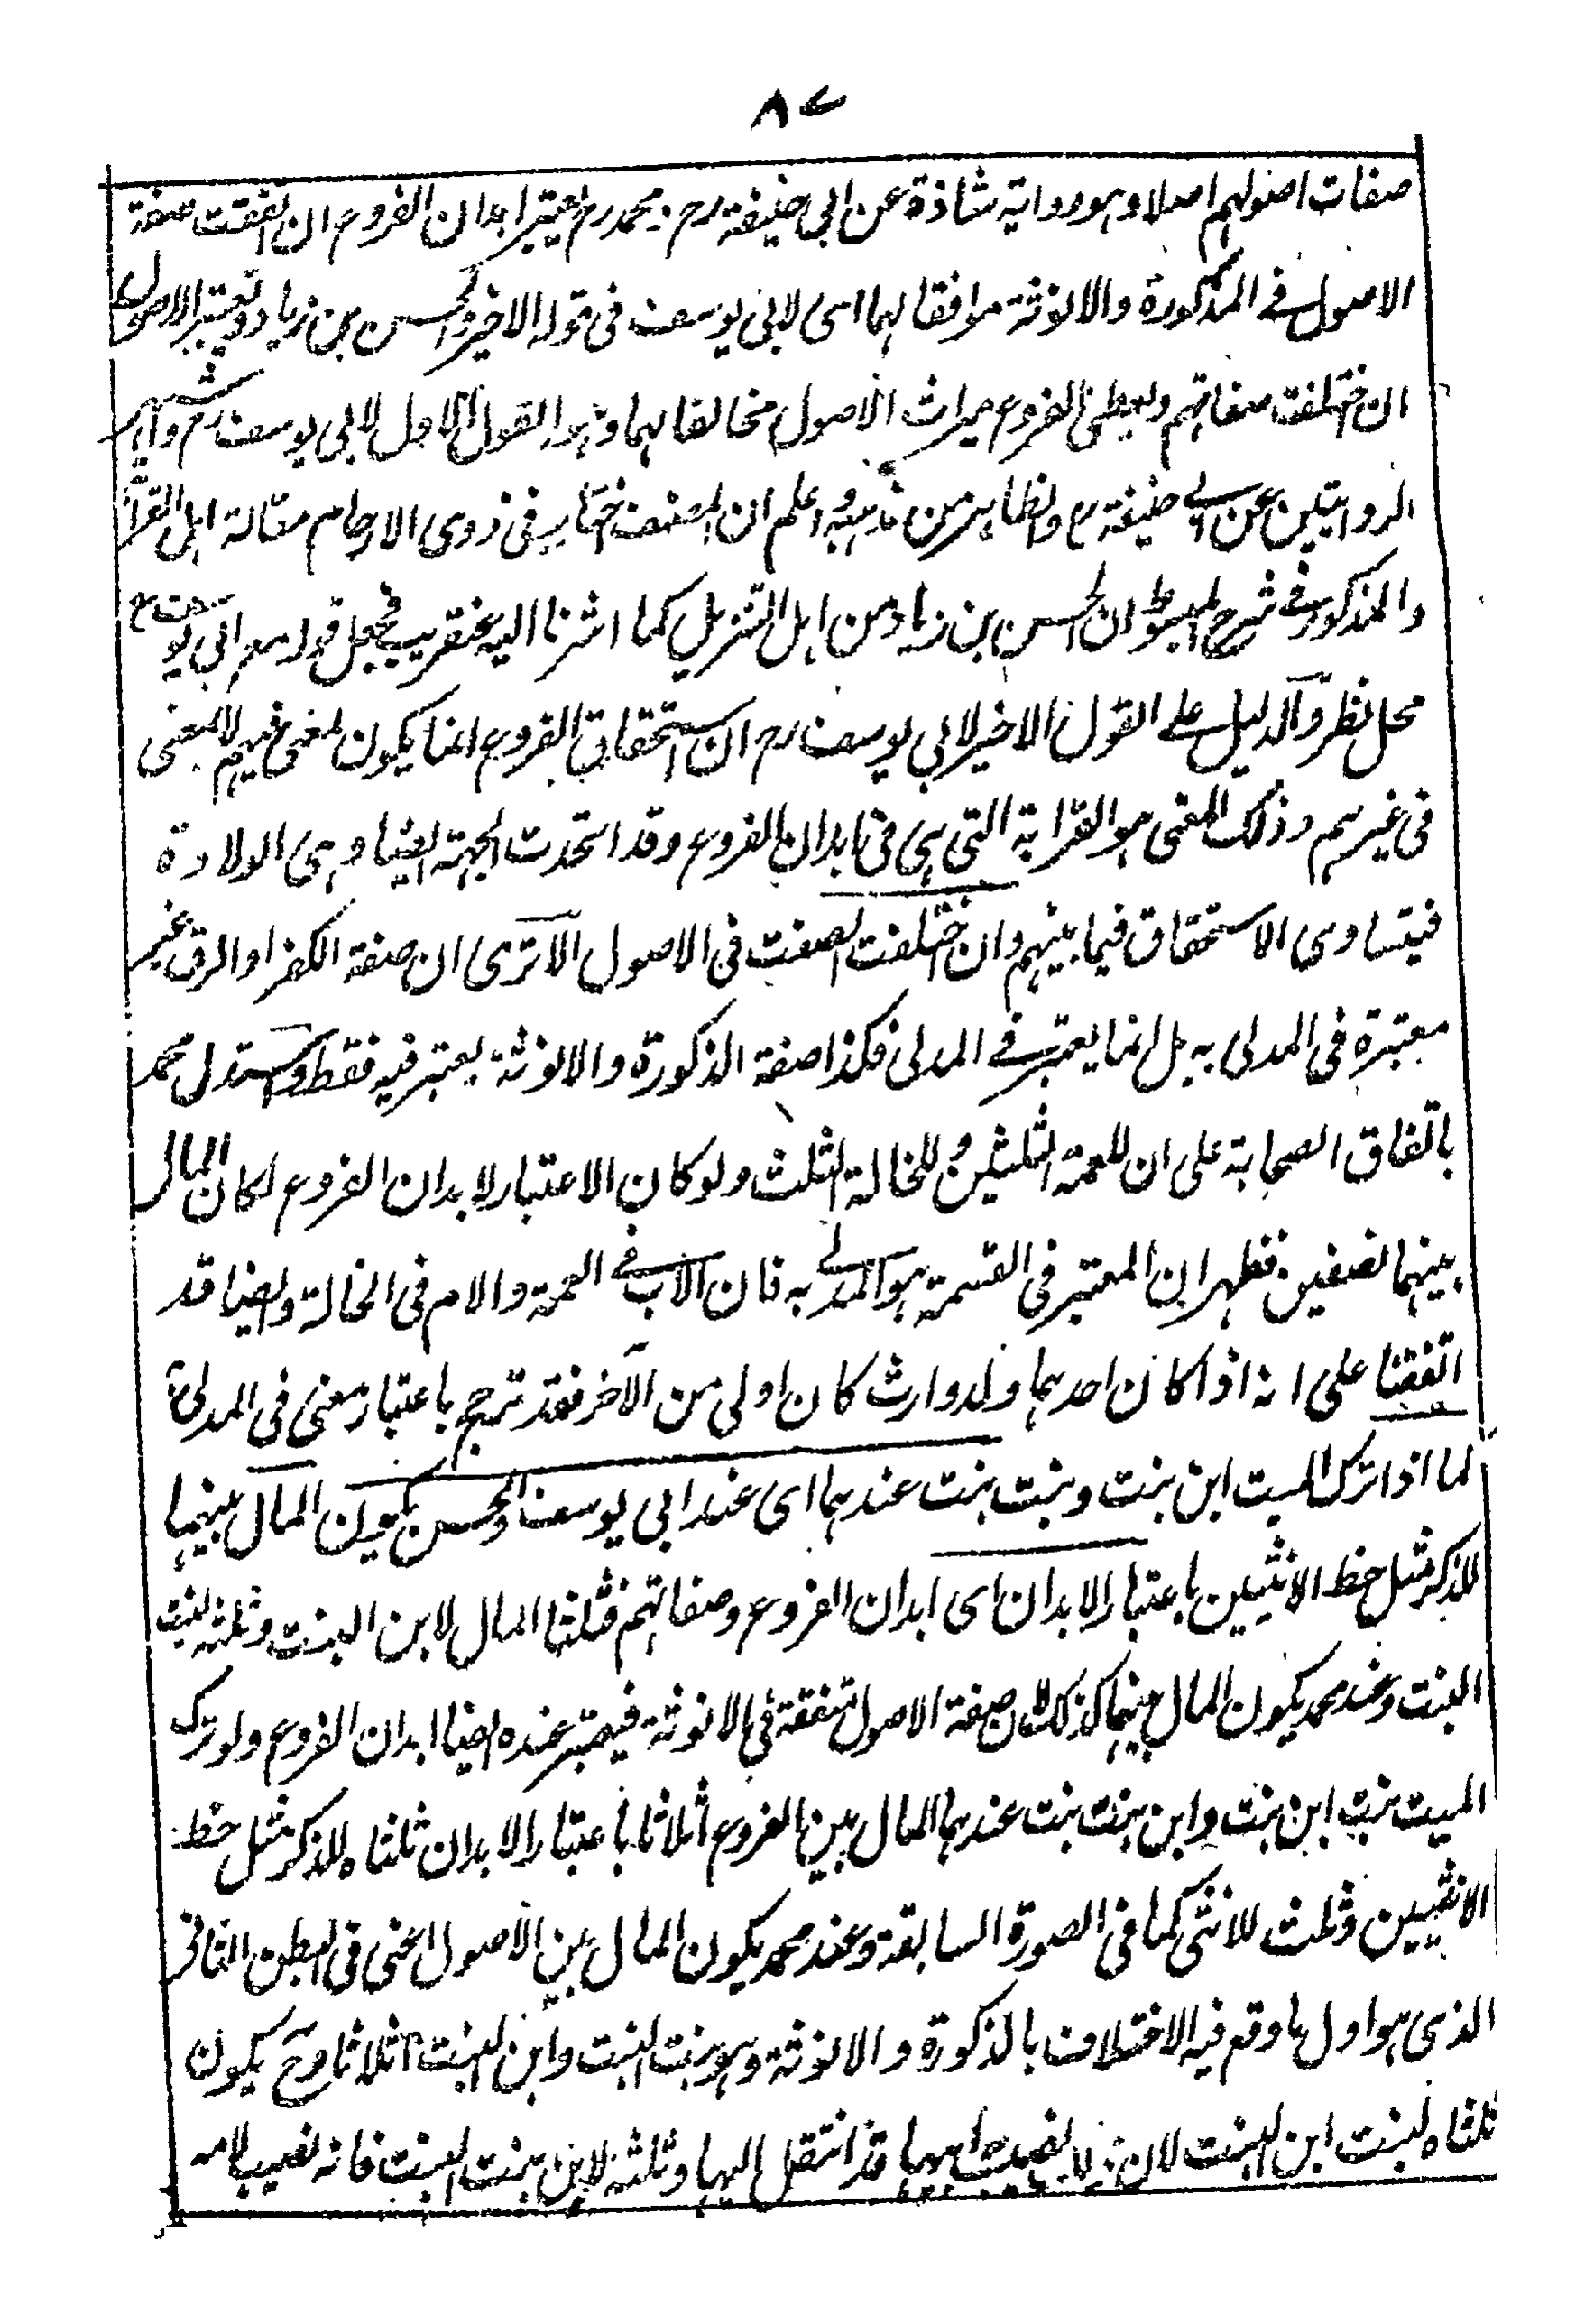 ٨٧
صفات اصولهم اصلا وهو رواية شاذة عن ابي حنيفة رح ومحمد رح يعتبر ابدان الفروع ان اتفقت صفة
الاصول في المذكورة والانوثة موافقا لهما اي لابي يوسف في قوله الاخير والحسن بن زياد ويعتبر الاصول
ان اختلفت صفاتهم ويعطى الفروع ميراث الاصول مخالفا لهما وهو القول الاول لابي يوسف رح واشهر
الروايتين عن ابي حنيفة رح والظاهر من مذهبه واعلم ان المصنف اختار في ذوى الارحام مقالة اهل القرابة
والمذكور في شرح المبسوط ان الحسن بن زياد من اهل التنزيل كما اشرنا اليه عنقريب فجعل قوله مع ابي يوسف رح
محل نظر والدليل على القول الاخير لابي يوسف رح ان استحقاق الفروع انما يكون لمعنى فيهم لا لمعنى
في غيرهم وذلك المعنى هو القرابة التي هي في ابدان الفروع وقد اتحدت الجهة ايضا وهي الولادة
فيتساوى الاستحقاق فيما بينهم وان اختلفت الصفت في الاصول الا ترى ان صفة الكفر او الرق غير
معتبرة في المدلى به بل انما يعتبر في المدلى فكذا صفة الذكورة والانوثة يعتبر فيه فقط واستدل محمد
باتفاق الصحابة على ان للعمة الثلثين وللخالة الثلث ولو كان الاعتبار لابدان الفروع لكان المال
بينهما نصفين فظهر ان المعتبر في القسمة هو المدلى به فان الاب في العمة والام في الخالة وايضا قد
اتفقنا على انه اذا كان احدهما ولد وارث كان اولى من الآخر فقد ترجح باعتبار معنى في المدلى به
لما اذا ترك الميت ابن بنت وبنت بنت عندهما اى عند ابي يوسف والحسن يكون المال بينهما
للذكر مثل حظ الانثيين باعتبار الابدان اى ابدان الفروع وصفاتهم فثلثا المال لابن البنت وثلثه لبنت
البنت وعند محمد يكون المال بينهما كذلك لان صفة الاصول متفقة في الانوثة فيعتبر عنده ايضا ابدان الفروع ولو ترك
الميت بنت ابن بنت وابن بنت بنت عندهما المال بين الفروع اثلاثا باعتبار الابدان ثلثاه للذكر مثل حظ
الانثيين وثلث للانثى كما في الصورة السابقة وعند محمد يكون المال بين الاصول اعنى في البطن الثاني
الذى هو اول ما وقع فيه الاختلاف بالذكورة والانوثة وهو بنت البنت وابن البنت اثلاثا وح يكون
ثلثاه لبنت ابن البنت لان نصيب ابيها قد انتقل اليها وثلثه لابن بنت البنت فانه نصيب لامه